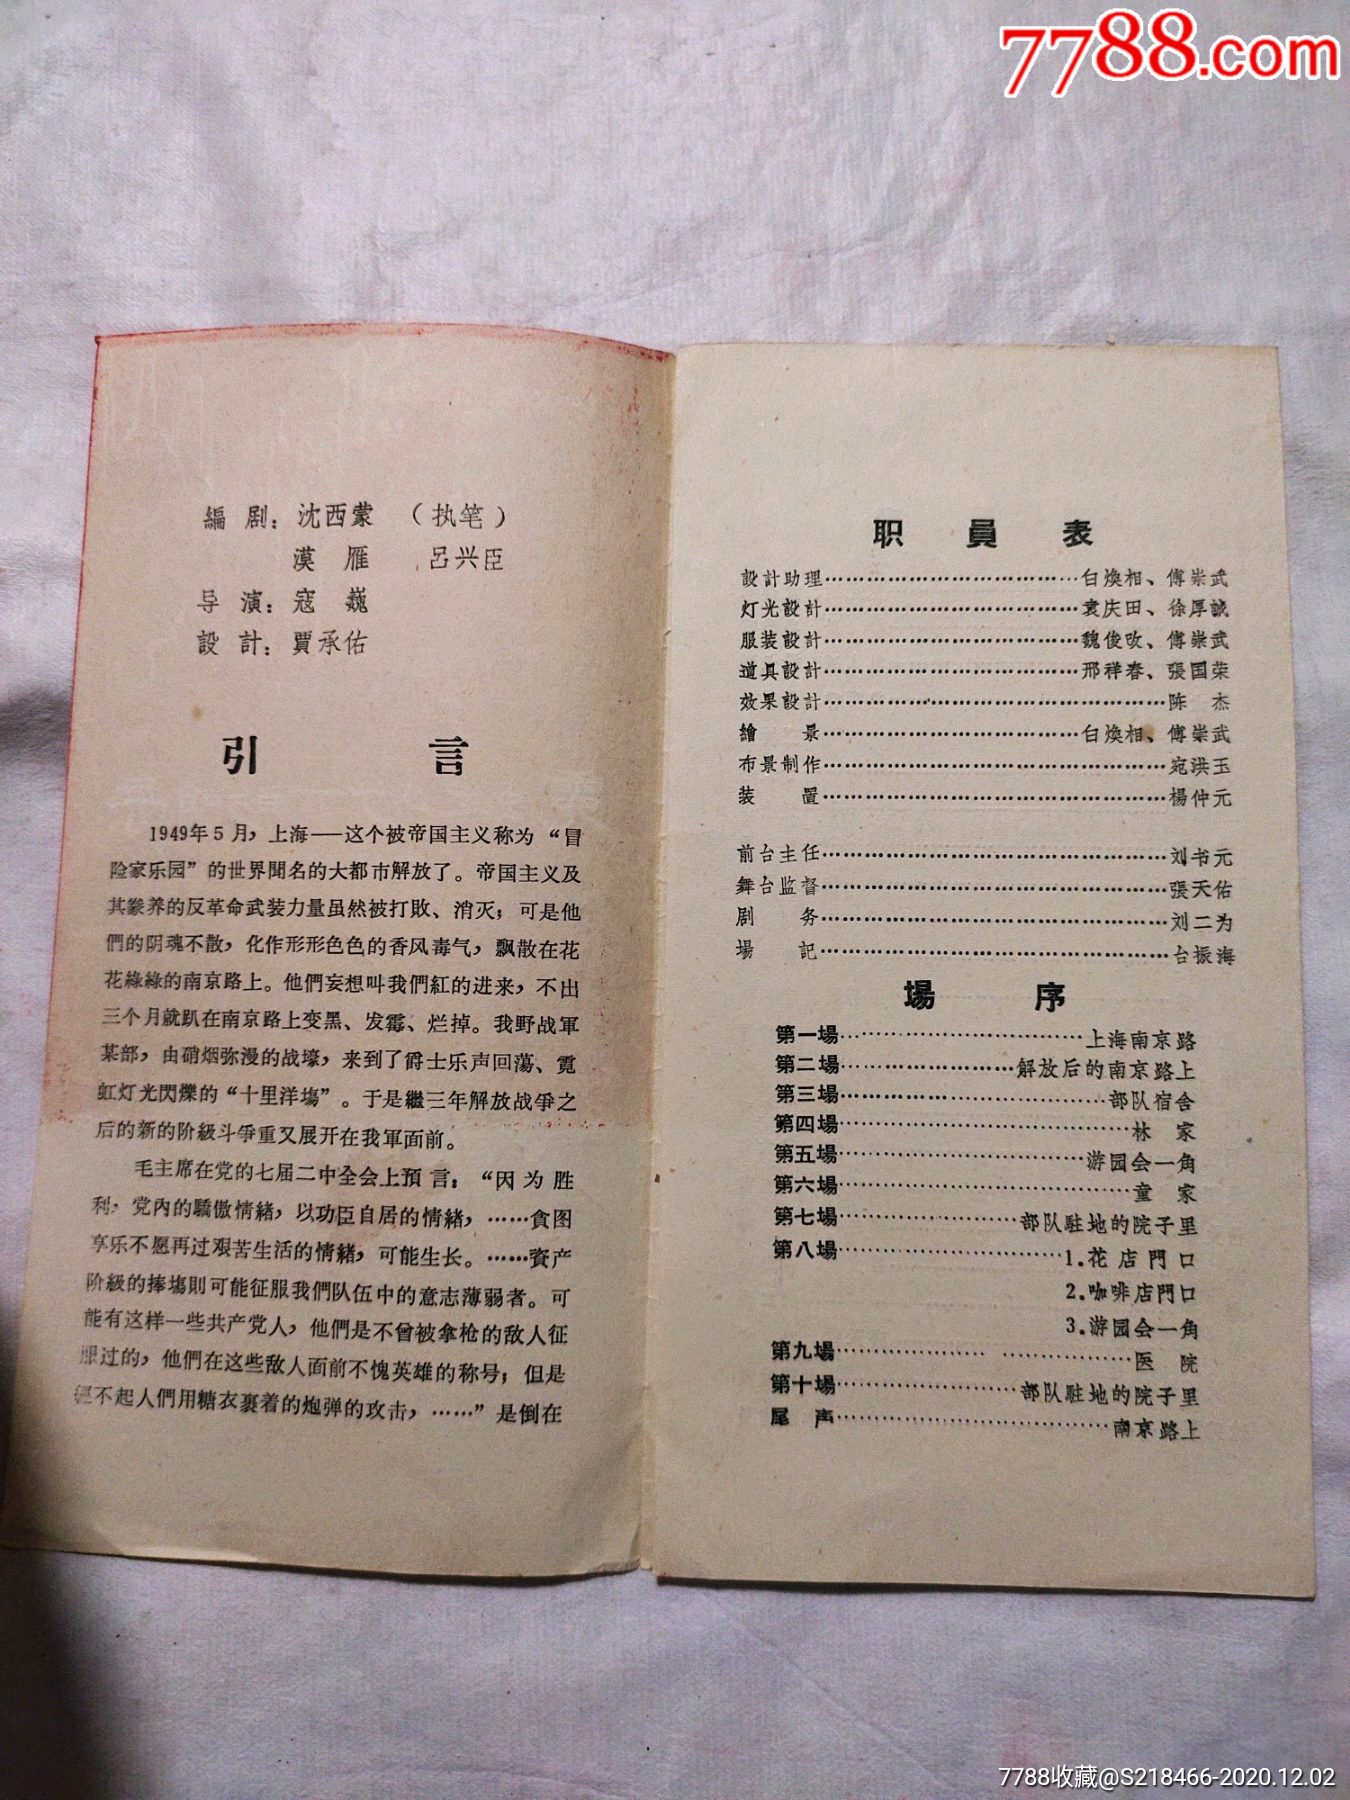 7788.com
編剧：沈西蒙（执笔）
漠雁 吕兴臣
导演：寇巍
設計：賈承佑
引言
1949年5月，上海——这个被帝国主义称为“冒
险家乐园”的世界聞名的大都市解放了。帝国主义及
其豢养的反革命武装力量虽然被打敗、消灭；可是他
們的阴魂不散，化作形形色色的香风毒气，飘散在花
花綠綠的南京路上。他們妄想叫我們紅的进来，不出
三个月就趴在南京路上变黑、发霉、烂掉。我野战軍
某部，由硝烟弥漫的战壕，来到了爵士乐声回荡、霓
虹灯光閃爍的“十里洋塲”。于是繼三年解放战爭之
后的新的阶級斗爭重又展开在我軍面前。
毛主席在党的七届二中全会上預言：“因为胜
利，党內的驕傲情緒，以功臣自居的情緒，……貪图
享乐不愿再过艰苦生活的情緒，可能生长。……資产
阶級的捧塲則可能征服我們队伍中的意志薄弱者。可
能有这样一些共产党人，他們是不曾被拿枪的敌人征
服过的，他們在这些敌人面前不愧英雄的称号；但是
經不起人們用糖衣裹着的炮弹的攻击，……”是倒在
职員表
設計助理……………………………白煥相、傅崇武
灯光設計……………………………袁庆田、徐厚誠
服装設計……………………………魏俊改、傅崇武
道具設計……………………………邢祥春、張国荣
效果設計……………………………陈杰
繪景……………………………白煥相、傅崇武
布景制作……………………………宛洪玉
装置……………………………楊仲元
前台主任……………………………刘书元
舞台监督……………………………張天佑
剧务……………………………刘二为
場記……………………………台振海
場序
第一場……………………上海南京路
第二場……………………解放后的南京路上
第三場……………………部队宿舍
第四場……………………林家
第五場……………………游园会一角
第六場……………………童家
第七場……………………部队駐地的院子里
第八場……………………1.花店門口
2.咖啡店門口
3.游园会一角
第九場……………………医院
第十場……………………部队駐地的院子里
尾声……………………南京路上
7788收藏@S218466-2020.12.02